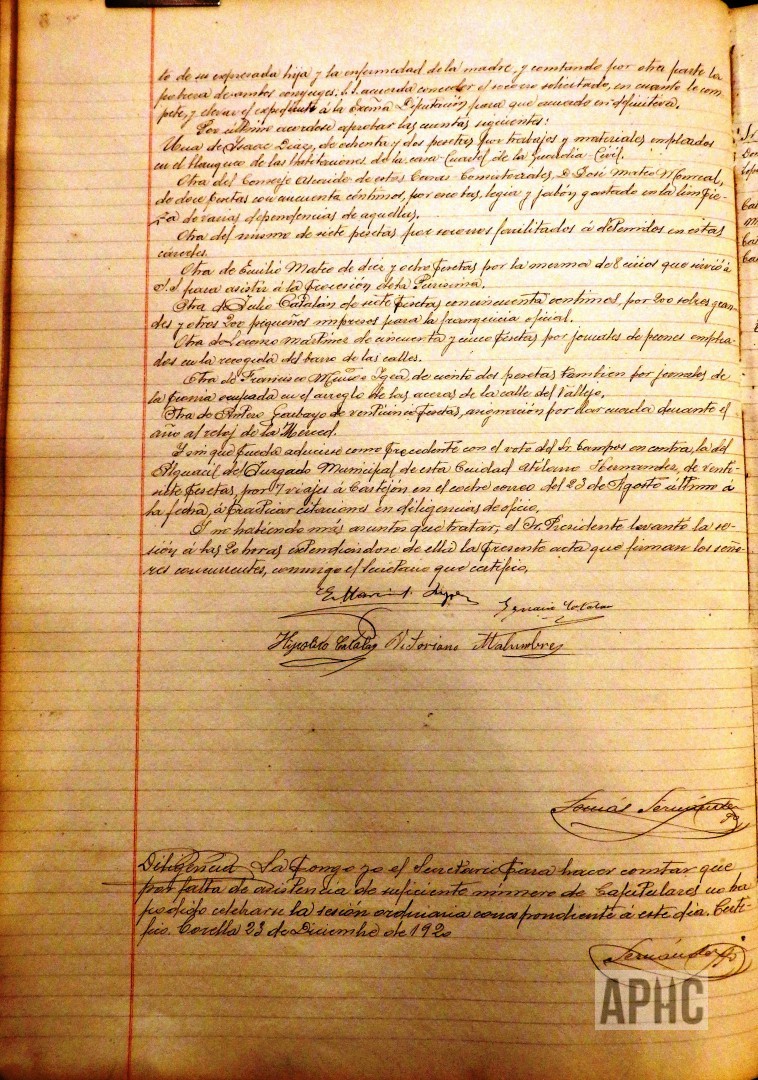 to de su expresada hija y la enfermedad de la madre, y constando por otra parte la
pobreza de ambos conyuges, S.S. acuerda conceder el socorro solicitado, en cuanto le com-
pete, y elevar el expediente á la Excma Diputación para que acuerde en definitiva.
Por último acordose aprobar las cuentas siguientes:
Una de Isaac Diaz, de ochenta y dos pesetas por trabajos y materiales empleados
en el blanqueo de las habitaciones de la casa Cuartel de la Guardia Civil.
Otra del Conserje Alcaide de estas Casas Consistoriales, D. José Mateo Monreal,
de doce pesetas con cincuenta céntimos, por escobas, legia y jabón gastado en la limpie-
za de varias dependencias de aquellas.
Otra del mismo de siete pesetas por socorros facilitados á detenidos en estas
carceles.
Otra de Emilio Mateo de diez y ocho pesetas por la merma de 8 cirios que sirvió á
S.S. para asistir á la Procesión de la Purisima.
Otra de Julio Catalán de siete pesetas con cincuenta centimos, por 200 sobres gran-
des y otros 200 pequeños impresos para la franquicia oficial.
Otra de Martinez de cincuenta y cinco pesetas por jornales de peones emplea-
dos en la recogida del barro de las calles.
Otra de Francisco Igea, de ciento dos pesetas tambien por jornales de
la peonia ocupada en el arreglo de las aceras de la calle del Vallejo.
Otra de Arturo Garbayo de venticinco pesetas, asignación por dar cuerda durante el
año al reloj de la Merced.
Y sin que pueda aducirse como precedente con el voto del Sr Campos en contra, la del
Alguacil del Juzgado Municipal de esta Ciudad Atilano Fernandez, de venti-
siete pesetas, por 7 viajes á Castejón en el coche correo del 23 de Agosto último á
la fecha, á practicar citaciones en diligencias de oficio.
Y no habiendo más asuntos que tratar, el Sr. Presidente levantó la se-
sión á las 20 horas extendiendose de ella la presente acta que firman los seño-
res concurrentes, conmigo el Secretario que certifico.
Ignacio Catalan
Hipolito Catalan Victoriano Malumbres
Tomás Fernández
Diligencia La pongo yo el Secretario para hacer constar que
por falta de asistencia de suficiente número de Capitulares no ha
podido celebrarse la sesión ordinaria correspondiente á este dia. Certi-
fico. Corella 23 de Diciembre de 1920
Fernández
APHC